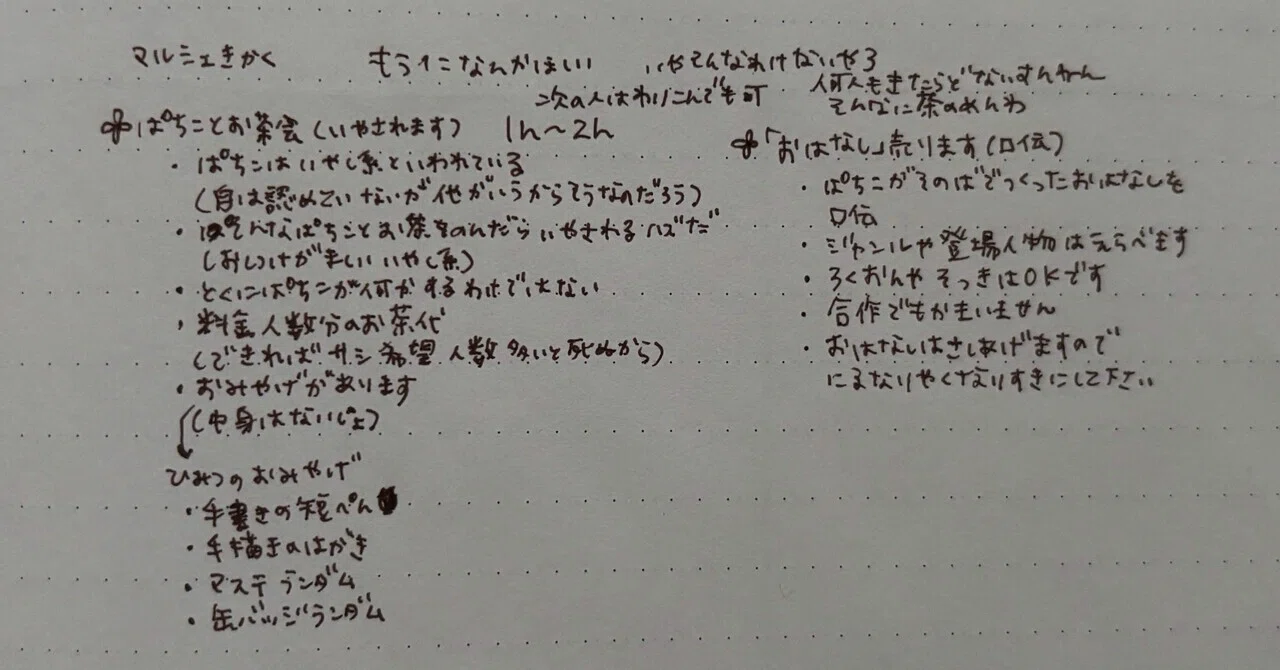 マルシェきかく
もう1こなんかほしい
いやそんなわけないやろ
次の人はわりこんでも可
何人もきたらどないすんねん
そんなに茶のめんわ
ぱちことお茶会(いやされます) 1n〜2n
・ぱちこはいやし系といわれている
(自は認めていないが他がいうからそうなのだろう)
・そんなぱちことお茶をのんだらいやされるハズだ
(おしつけがましいいやし系)
・とくにぱちこが何かするわけではない
・料金人数分のお茶代
(できればサシ希望 人数多いと死ぬから)
・おみやげがあります
(中身はないしょ)
ひみつのおみやげ
・手書きの短ぺん
・手描きのはがき
・マステランダム
・缶バッジランダム
「おはなし」売ります(口伝)
・ぱちこがそのばでつくったおはなしを
口伝
・ジャンルや登場人物はえらべます
・ろくおんやそっきはOKです
・合作でもかまいません
・おはなしはさしあげますので
にるなりやくなりすきにして下さい